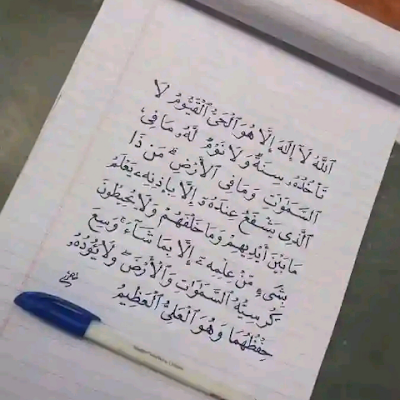 ٱللَّهُ لَآ إِلَٰهَ إِلَّا هُوَ ٱلْحَيُّ ٱلْقَيُّومُ لَا
تَأْخُذُهُۥ سِنَةٌ وَلَا نَوْمٌ لَّهُۥ مَا فِي
ٱلسَّمَٰوَٰتِ وَمَا فِي ٱلْأَرْضِ ۗ مَن ذَا
ٱلَّذِي يَشْفَعُ عِندَهُۥٓ إِلَّا بِإِذْنِهِۦ يَعْلَمُ
مَا بَيْنَ أَيْدِيهِمْ وَمَا خَلْفَهُمْ وَلَا يُحِيطُونَ
بِشَيْءٍ مِّنْ عِلْمِهِۦٓ إِلَّا بِمَا شَآءَ ۚ وَسِعَ
كُرْسِيُّهُ ٱلسَّمَٰوَٰتِ وَٱلْأَرْضَ ۖ وَلَا يَـُٔودُهُۥ
حِفْظُهُمَا وَهُوَ ٱلْعَلِيُّ ٱلْعَظِيمُ